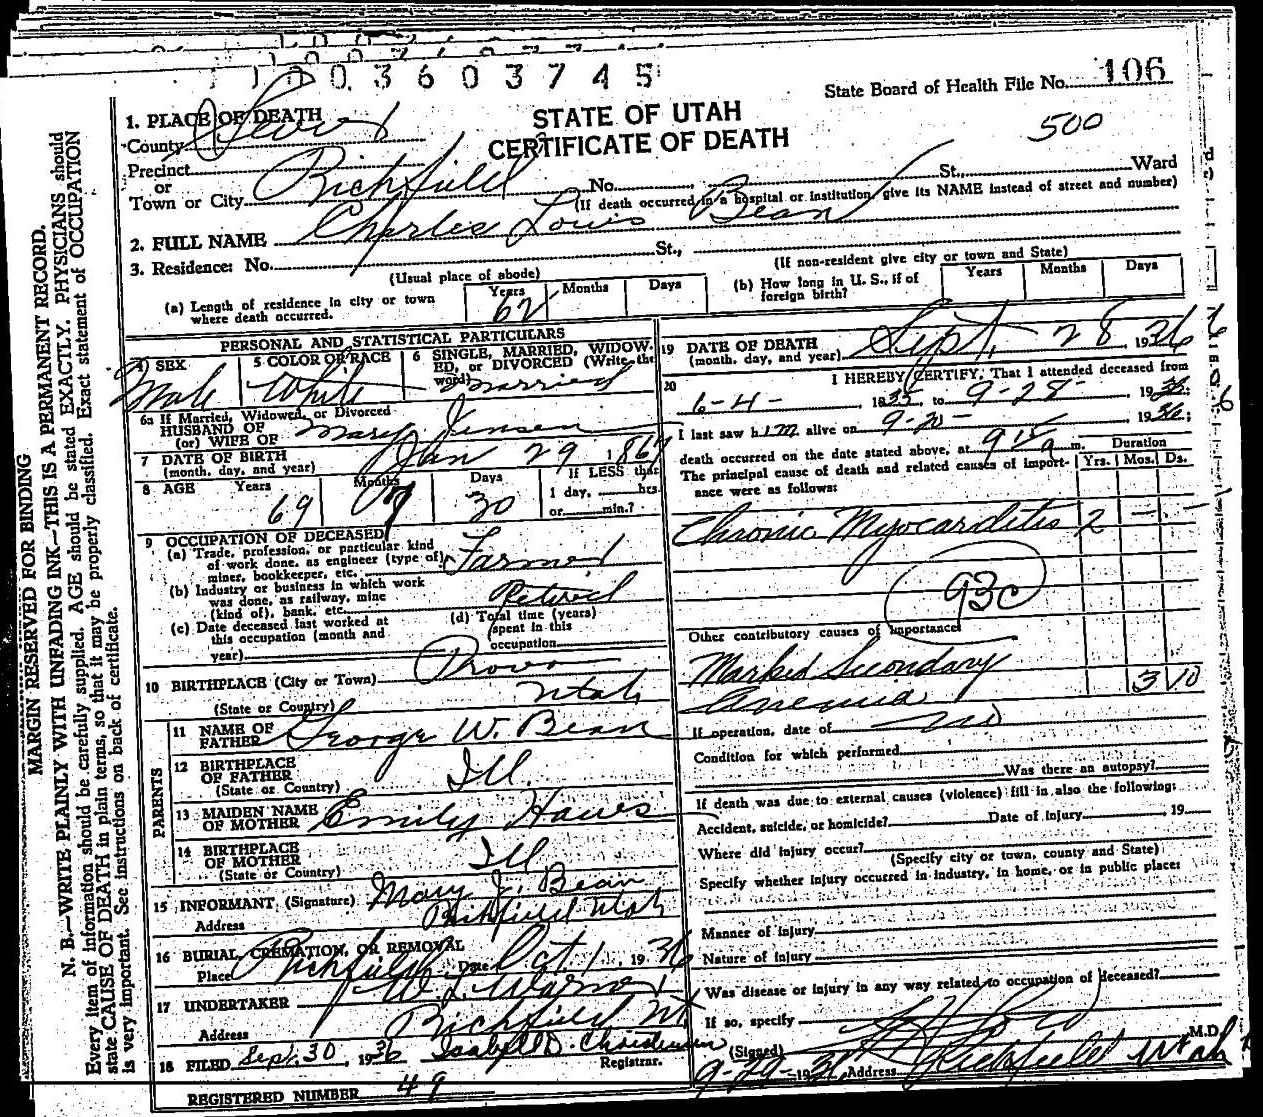 1003603745
State Board of Health File No. 106
STATE OF UTAH
CERTIFICATE OF DEATH
500
1. PLACE OF DEATH
County Sevier
Precinct
or
Town or City Richfield No. St., Ward
(If death occurred in a hospital or institution, give its NAME instead of street and number)
2. FULL NAME Charles Louis Bean
3. Residence: No. St.,
(Usual place of abode) (If non-resident give city or town and State)
(a) Length of residence in city or town where death occurred. Years 62 Months Days
(b) How long in U. S., if of foreign birth? Years Months Days
PERSONAL AND STATISTICAL PARTICULARS
SEX Male
5 COLOR OR RACE White
6 SINGLE, MARRIED, WIDOWED, or DIVORCED (Write the word) Married
6a If Married, Widowed, or Divorced
HUSBAND OF
(or) WIFE OF Mary Jensen
7 DATE OF BIRTH
(month, day, and year) Jan 29 1867
8 AGE Years 69 Months 7 Days 30
If LESS than
1 day, hrs.
or min.?
9 OCCUPATION OF DECEASED
(a) Trade, profession, or particular kind
of work done, as engineer (type of)
miner, bookkeeper, etc. Farmer
(b) Industry or business in which work
was done, as railway, mine
(kind of), bank, etc. Retired
(c) Date deceased last worked at
this occupation (month and
year)
(d) Total time (years)
spent in this
occupation
10 BIRTHPLACE (City or Town) Provo
(State or Country) Utah
PARENTS
11 NAME OF
FATHER George W. Bean
12 BIRTHPLACE
OF FATHER
(State or Country) Ill.
13 MAIDEN NAME
OF MOTHER Emily Haws
14 BIRTHPLACE
OF MOTHER
(State or Country) Ill
15 INFORMANT (Signature) Mary J. Bean
Address Richfield Utah
16 BURIAL, CREMATION, OR REMOVAL
Place Richfield Date Oct 1, 1936
17 UNDERTAKER W. L. Warner
Address Richfield Ut
18 FILED Sept. 30, 1936
Registrar.
REGISTERED NUMBER 49
19 DATE OF DEATH
(month, day, and year) Sept. 28 1936
20 I HEREBY CERTIFY, That I attended deceased from
6-4- 1935, to 9-28- 1936;
I last saw him alive on 9-20- 1936;
death occurred on the date stated above, at 9 15 a m.
The principal cause of death and related causes of importance were as follows:
Duration
Yrs. Mos. Ds.
Chronic Myocarditis 2 - -
93c
Other contributory causes of importance:
Marked Secondary
Anemia 3 10
If operation, date of no
Condition for which performed
Was there an autopsy?
If death was due to external causes (violence) fill in also the following:
Accident, suicide, or homicide? Date of injury , 19
Where did injury occur?
(Specify city or town, county and State)
Specify whether injury occurred in industry, in home, or in public place:
Manner of injury
Nature of injury
Was disease or injury in any way related to occupation of deceased?
If so, specify
(Signed) M.D.
9-29-1936 Address Richfield Utah
MARGIN RESERVED FOR BINDING
N. B.—WRITE PLAINLY WITH UNFADING INK—THIS IS A PERMANENT RECORD.
Every item of information should be carefully supplied. AGE should be stated EXACTLY. PHYSICIANS should
state CAUSE OF DEATH in plain terms, so that it may be properly classified. Exact statement of OCCUPATION
is very important. See instructions on back of certificate.